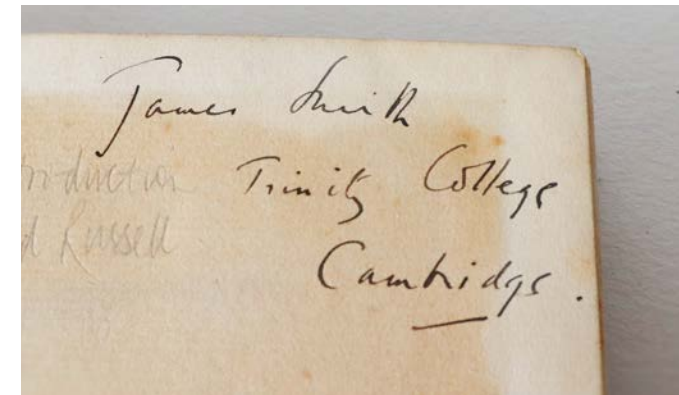 James Smith
Trinity College
Cambridge.
troduction
d Russell